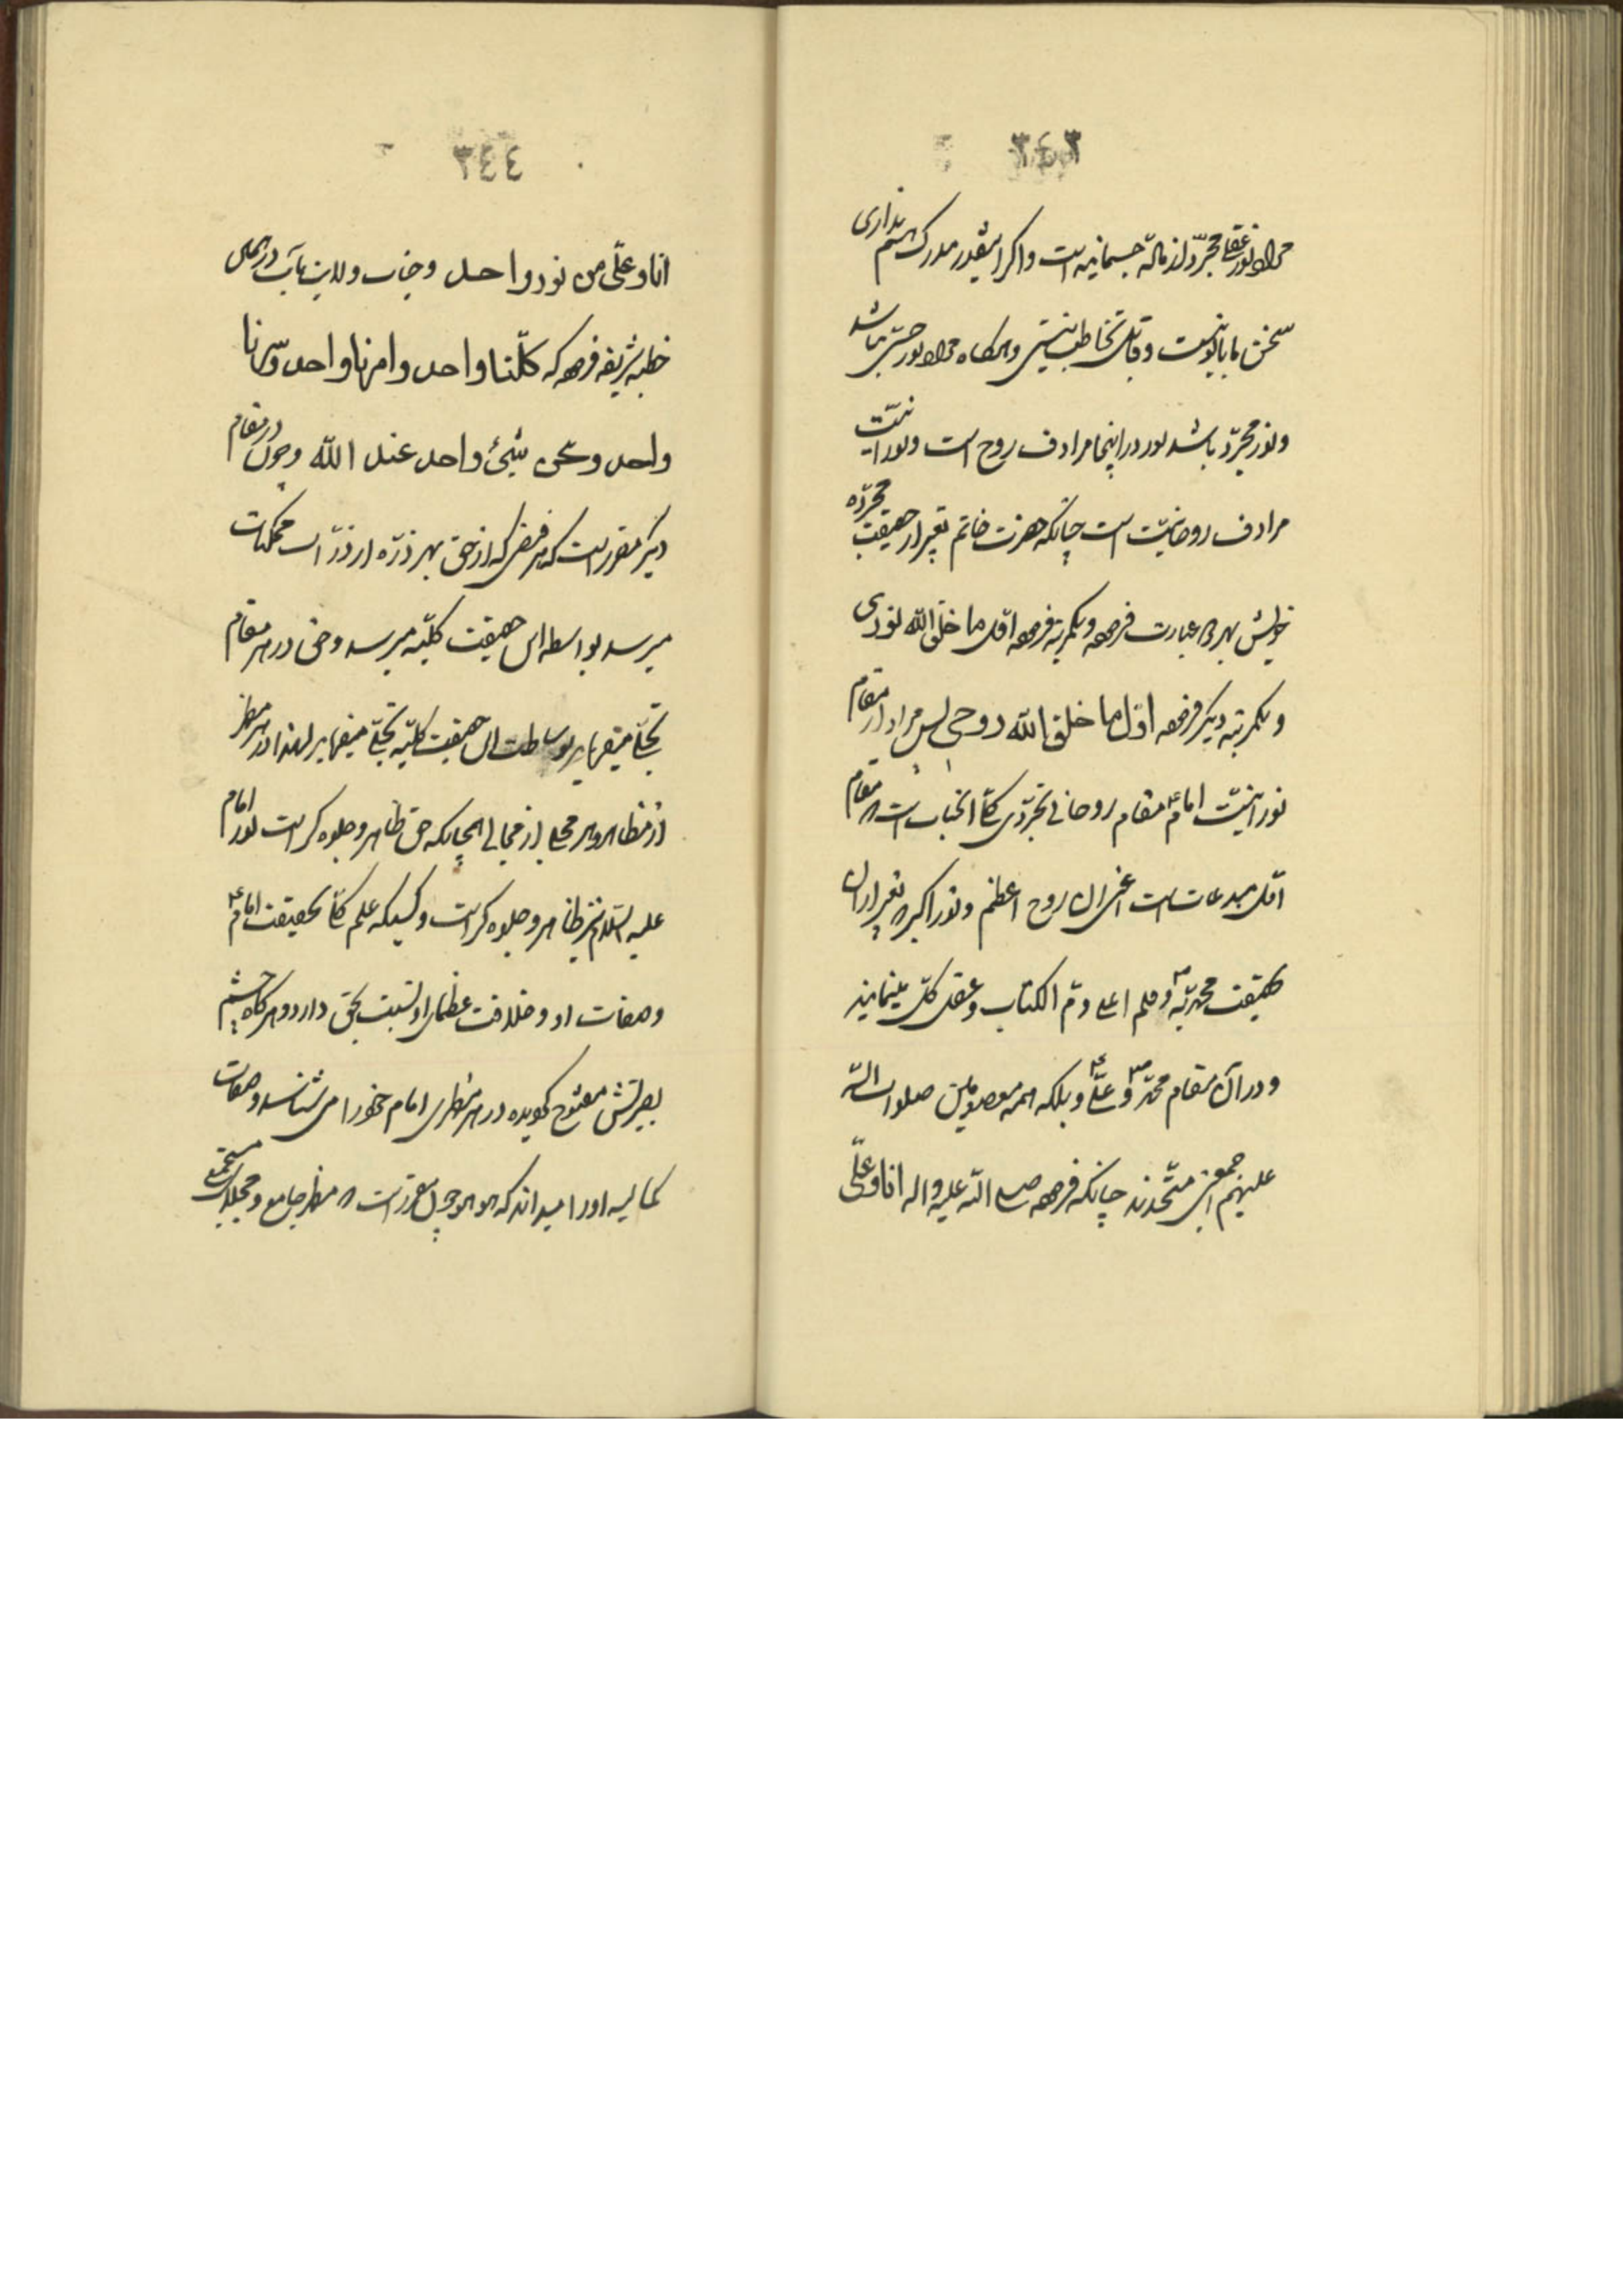 ٣٤٣
مراد نور عقلی مجرّد از مادّه جسمانیه است واکر اینقدر مدرک هم نداری
سخن با با تو نیست وقابل تخاطب نیستی وهرکاه مراد نور حسّی نباشد
ونور مجرّد باشد نور در اینجا مرادف روح است ونورانیّت
مرادف روحانیّت است چنانکه حضرت خاتم تعبیر از حقیقت مجرّده
خویش بهر دو عبارت فرموده ویکمرتبه فرموده اوّل ما خلق الله نوری
ویکمرتبه دیکر فرموده اوّل ما خلق الله روحی پس مراد از مقام
نورانیّت امام ع مقام روحانی تجرّدی کلّی انجناب است که مقام
اوّل مبدعات است اعنی ان روح اعظم ونور اکبر که تعبیر از ان
بحقیقت محمّدیّه ص وقلم اعلی وامّ الکتاب وعقل کلّ مینمایند
ودر آن مقام محمّد ص وعلی ع وبلکه همه معصومین صلوات الله
علیهم اجمعین متّحدند چنانکه فرموده صلی الله علیه واله انا وعلیّ
٣٤٤
انا وعلّی من نور واحد وجناب ولایت مآب در همان
خطبه شریفه فرموده که کلّنا واحد وامرنا واحد وسّرنا
واحد ونحن شیئ واحد عند الله وچون در مقام
دیکر مقرر است که هر فیضی که از حق بهر ذرّه از ذرّات ممکنات
میرسد بواسطه این حقیقت کلیّه میرسد وحق در هر مقام
تجلّی میفرماید بوساطت این حقیقت کلیّه تجلّی میفرماید لهذا در هر مظهر
از مظاهر وهر مجلی از مجالی همچنانکه حق ظاهر وجلوه کر است نور امام
علیه السلام نیز ظاهر وجلوه کر است وکسیکه علم کلّی بحقیقت امام ع
وصفات او وخلافت عظمای او نسبت بحق دارد وهرکاه چشم
بصیرتش مفتوح کردیده در هر مظهری امام خود را می شناسد وصفات
کمالیه او را میداند که هو الموجود مقرر است که مظهر جامع ومجلای مستجمع